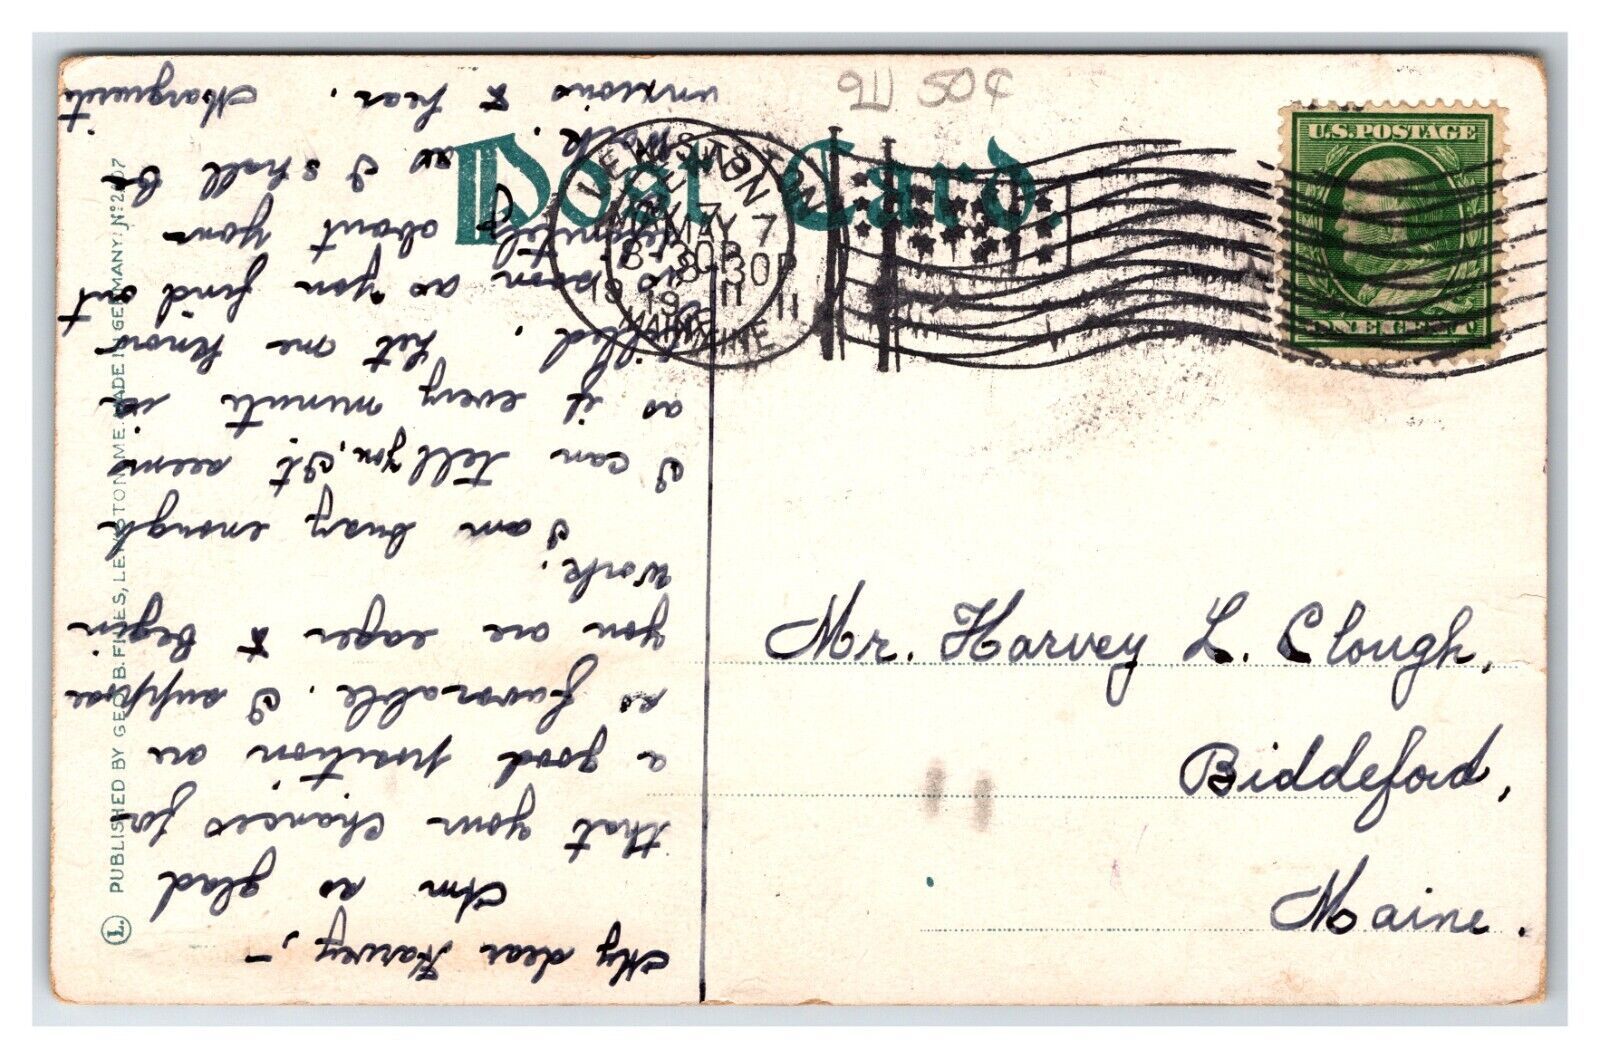 Post Card.
911 50¢
U.S. POSTAGE
ONE CENT
LEWISTON
MAY 7
8-30P
1911
MAINE
Mr. Harvey L. Clough,
Biddeford,
Maine.
My dear Harvey,-
Am so glad
that your chances for
a good position are
so favorable. I suppose
you are eager to begin
work.
I am busy enough
I can tell you. It seems
as if every minute is
filled. Let me know
as soon as you find out
definitely about your
work, as I shall be
anxious to hear. Marguerite
L. PUBLISHED BY GEO. B. FILES, LEWISTON, ME. MADE IN GERMANY. Nº